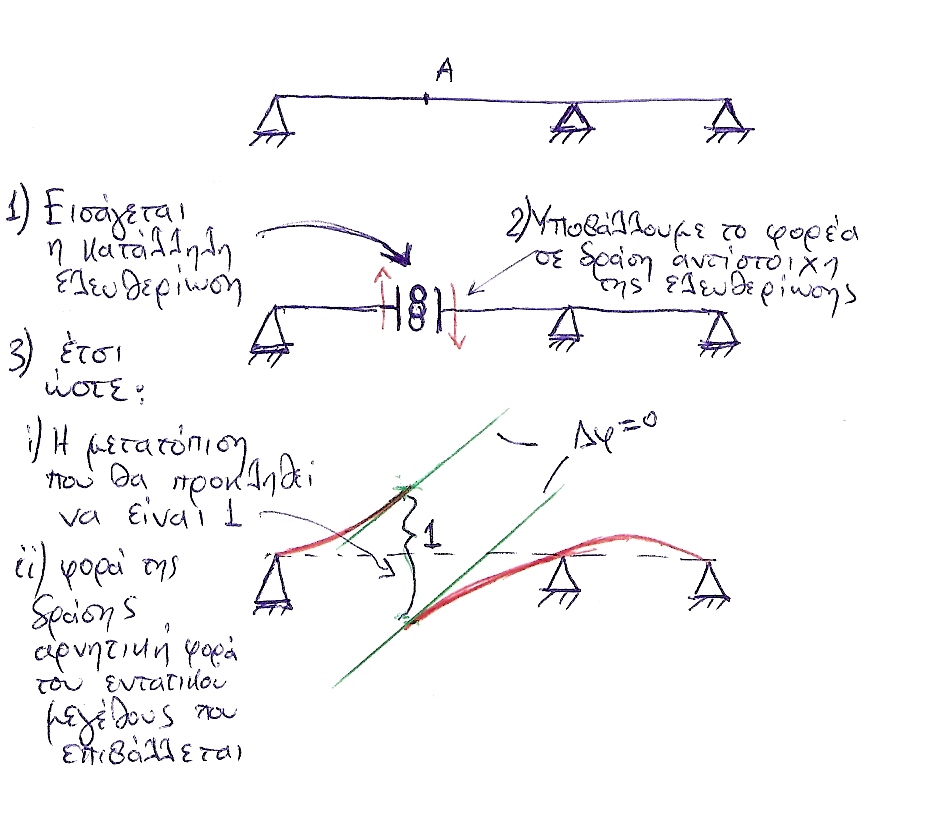 A
1) Εισάγεται
η κατάλληλη
ελευθερίωση
2) Υποβάλλουμε το φορέα
σε δράση αντίστοιχη
της ελευθερίωσης
3) έτσι
ώστε:
i) Η μετατόπιση
που θα προκληθεί
να είναι 1
Δφ=0
1
ii) φορά της
δράσης
αρνητική φορά
του εντατικου
μεγέθους που
επιβάλλεται